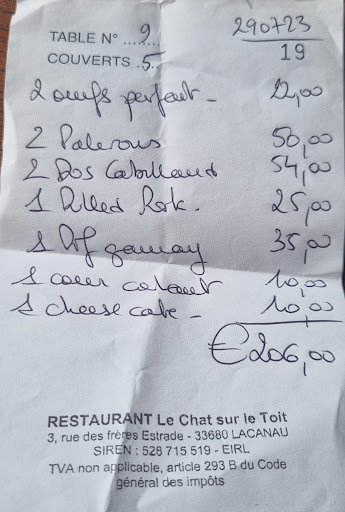 TABLE N° ...9...... 290723
COUVERTS .5.. 19
2 oeufs parfait - 22,00
2 50,00
2 Dos Cabillaud 54,00
1 Pulled Pork. 25,00
1 gamay 35,00
1 coeur coulant 10,00
1 cheese cake - 10,00
€206,00
RESTAURANT Le Chat sur le Toit
3, rue des frères Estrade - 33680 LACANAU
SIREN : 528 715 519 - EIRL
TVA non applicable, article 293 B du Code
général des impôts